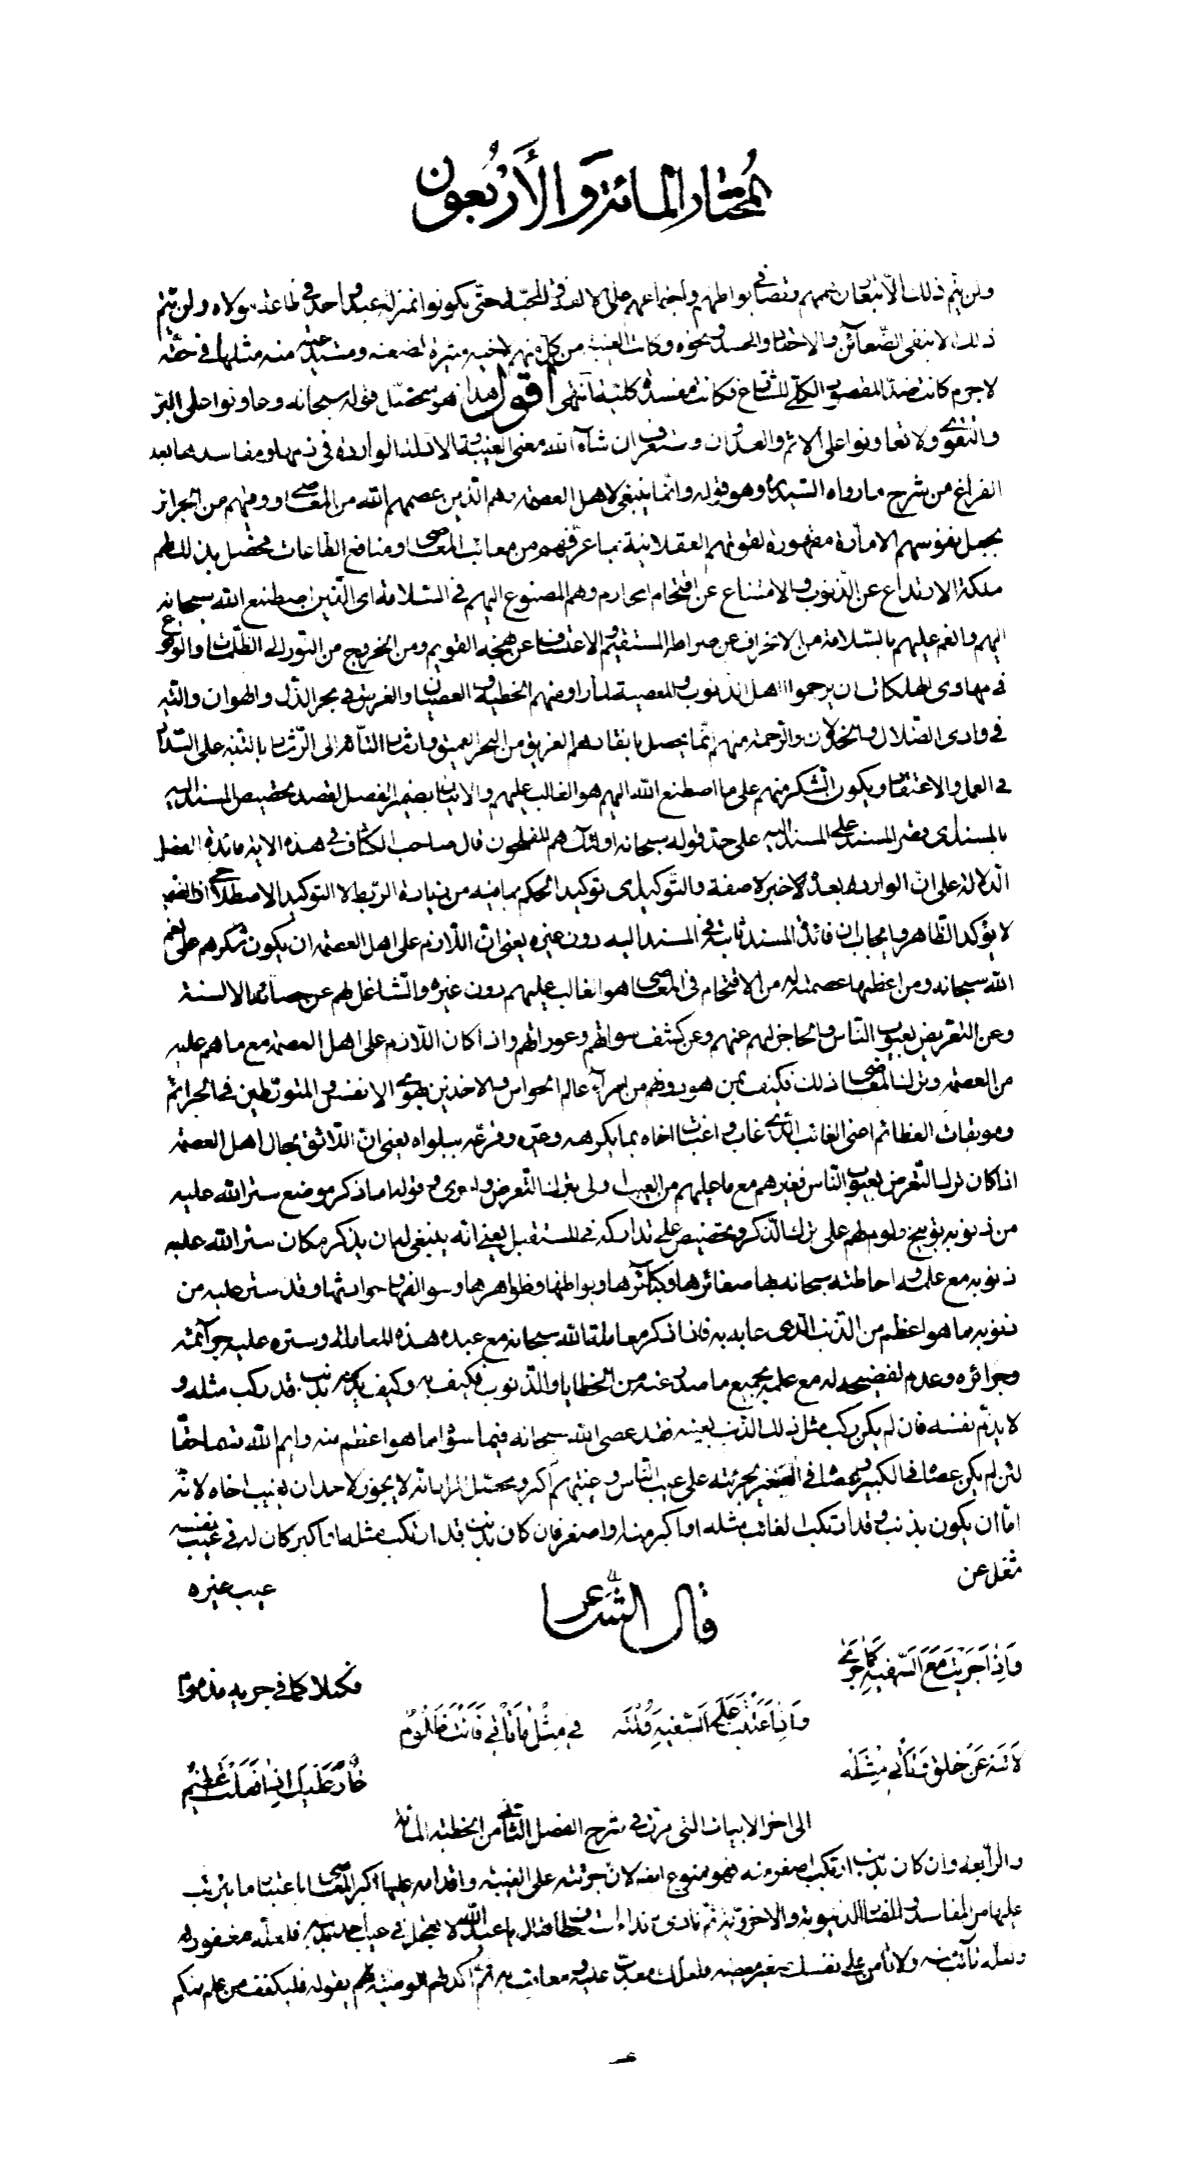 المختار المائة والأربعون
ولن يتم ذلك إلا بتعاون هممهم وتصافي بواطنهم واجتماعهم على الالفة والمحبة حتى يكونوا بمنزلة عبد واحد في طاعة مولاه ولن يتم
ذلك الا بنفي الضغائن والاحقاد والحسد ونحوه وكانت الغيبة من كل منهم لاخيه مثيرة لضغنه ومستدعية منه مثلها في حقه
لا جرم كانت ضد المقصود الكلي للشارع فكانت مفسدة كلية انتهى اقول هذا هو محصل قوله سبحانه وتعاونوا على البر
والتقوى ولا تعاونوا على الاثم والعدوان وستعرف ان شاء الله معنى الغيبة والادلة الواردة في ذمها ومفاسدها بعد
الفراغ من شرح ما رواه السيد ره وهو قوله وانما ينبغي لاهل العصمة وهم الذين عصمهم الله من المعاصي ووقيهم من الجرائر
بجعل نفوسهم الامارة مقهورة لقوتهم العقلانية بما عرفهم من معائب المعاصي ومنافع الطاعات فحصل بذلك لهم
ملكة الارتداع عن الذنوب والامتناع عن اقتحام المحارم وهم المصنوع اليهم في السلامة اي الذين اصطنع الله سبحانه
اليهم وانعم عليهم بالسلامة من الانحراف عن صراطه المستقيم والاعتساف عن نهجه القويم ومن الخروج من النور الى الظلمات والوقوع
في مهاوى الهلكات ان يرحموا اهل الذنوب والمعصية لما راوا منهم الخطيئة والعصيان والغرق في بحر الذل والهوان والتيه
في وادى الضلال والخذلان والرحمة منهم انما يحصل بانقاذهم الغريق من البحر العميق وارشاد التائه الى الرشاد بالتنبه على السداد
في العمل والاعتقاد ويكون الشكر منهم على ما اصطنع الله اليهم هو الغالب عليهم والاتيان بضمير الفصل لقصد تخصيص المسند اليه
بالمسند اى قصر المسند على المسند اليه على حد قوله سبحانه اولئك هم المفلحون قال صاحب الكشاف في هذه الاية فائدة الفصل
الدلالة على ان الوارد بعده خبر لا صفة والتوكيد اى توكيد الحكم بما فيه من زيادة الربط لا التوكيد الاصطلاحي اذ الضمير
لا يؤكد الظاهر وايجاب ان فائدة المسند ثابتة في المسند اليه دون غيره يعني ان اللازم على اهل العصمة ان يكون شكرهم على نعم
الله سبحانه ومن اعظمها عصمته له من الاقتحام في المعاصي هو الغالب عليهم دون غيره والشاغل لهم عن حصائد الالسنة
وعن التعريض بعيوب الناس والحاجز لهم عنهم وعن كشف سوآتهم وعوراتهم واذا كان اللازم على اهل العصمة مع ما هم عليه
من العصمة وترك المعاصي ذلك فكيف بمن هو دونهم من اسراء عالم الحواس والاخذين بهوى الانفس المتورطين في الجرائم
وموبقات العظائم اعنى الغائب الذى غاب و اغتاب اخاه بما يكرهه وعيره وقرعه ببلواه يعنى ان اللائق بحال اهل العصمة
اذا كان ترك التعرض بعيوب الناس فغيرهم مع ما عليهم من العيب اولى بترك التعرض واحرى وقوله اما ذكر موضع ستر الله عليه
من ذنوبه توبيخ ولوم لهم على ترك الذكر وتحضيض على تداركه في المستقبل يعني انه ينبغي له ان يذكر مكان ستر الله عليه
ذنوبه مع علمه واحاطته سبحانه بها صغائرها وكبائرها وبواطنها وظواهرها وسوالفها وحوادثها وقد ستر عليه من
ذنوبه ما هو اعظم من الذنب الذى عابه به فاذا ذكر معاملة الله سبحانه مع عبده هذه المعاملة وستره عليه جرائمه
وجرائره وعدم تفضيحه له مع علمه بجميع ما صدر عنه من الخطايا والذنوب فكيف به وكيف يذمه بذنب قد ركب مثله و
لا يذم نفسه فان لم يكن ركب مثل ذلك الذنب بعينه فقد عصى الله سبحانه فيما سواه مما هو اعظم منه وايم الله قسما حقا
لئن لم يكن عصاه في الكبير وعصاه في الصغير لجرئته على عيب الناس وغيبتهم اكبر ومحصل المراد انه لا يجوز لاحد ان يعيب اخاه لانه
اما ان يكون بذنب وقد ارتكب الغائب مثله او اكبر منه او اصغر فان كان بذنب قد ارتكب مثله او اكبر كان له في عيب نفسه
شغل عن عيب غيره
قال الشاعر
وَاِذا جَرَيْتَ مَعَ السَّفيهِ كَما جَرى فكلاكما في جريه مذموم
وَاِذا عَتَبْتَ عَلَى السَّفيهِ وَلُمْتَه في مِثْلِ ما تَأْتي فَاَنْتَ ظَلُومُ
لا تَنْهَ عَنْ خُلْقٍ وَتَأْتي مِثْلَهُ عارٌ عَلَيْكَ اِذا فَعَلْتَ عَظيمٌ
الى اخر الابيات التي مرت في شرح الفصل الثاني من الخطبة المائة
والرابعة وان كان بذنب ارتكب اصغر منه فهو ممنوع ايضا لان جرئته على الغيبة واقدامه عليها اكبر المعاصي باعتبار ما يترتب
عليها من المفاسد والمضار الدنيوية والاخروية ثم نادى نداء استعطاف فقال يا عبد الله لا تعجل في عيب احد بذنبه فلعله مغفور له
ولعله تائب منه ولا تأمن على نفسك صغير معصية فلعلك معذب عليه ومعاقب به ثم اكد لهم الوصية بقوله فليكفف من علم منكم